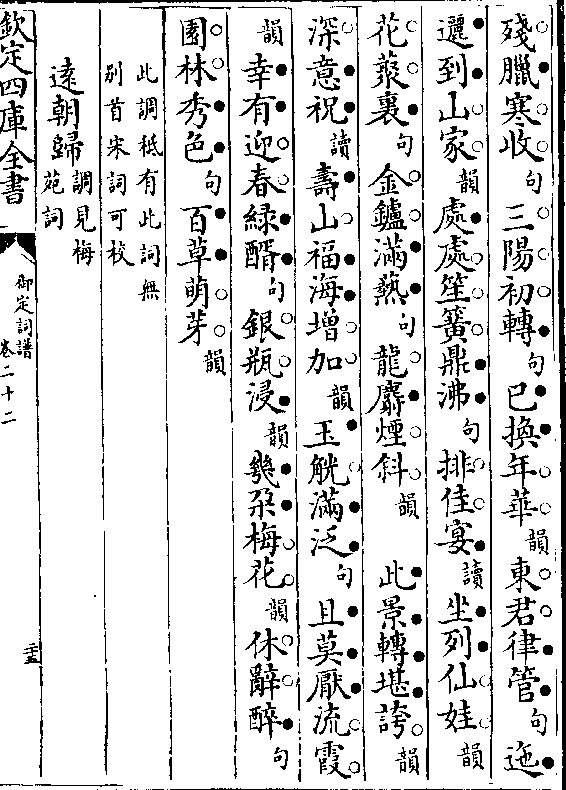 殘臘寒收句三陽初轉句已換年華韻東君律管句迤
邐到山家韻處處笙簧鼎沸句排佳宴讀坐列仙娃韻
花叢裏句金鑪滿爇句龍麝煙斜韻　此景轉堪誇韻
深意祝讀壽山福海增加韻玉觥滿泛句且莫厭流霞
韻幸有迎春綠醑句銀瓶浸韻幾朶梅花韻休辭醉句
園林秀色句百草萌芽韻
此調秖有此詞無
别首宋詞可校
逺朝歸調見梅
苑詞
欽定四庫全書
御定詞譜
卷二十二
三五